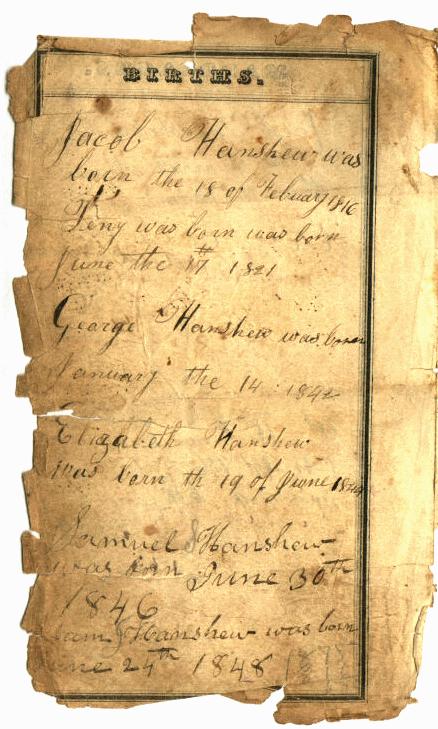 BIRTHS.
Jacob Hanshew was
born the 18 of Febuary 1816
was born was born
June the 17 1821
George Hanshew was born
January the 14 1842
Elizabeth Hanshew
was born th 19 of June
Samuel Hanshew
was born June 30th
1846
Hanshew was born
une 24th 1848